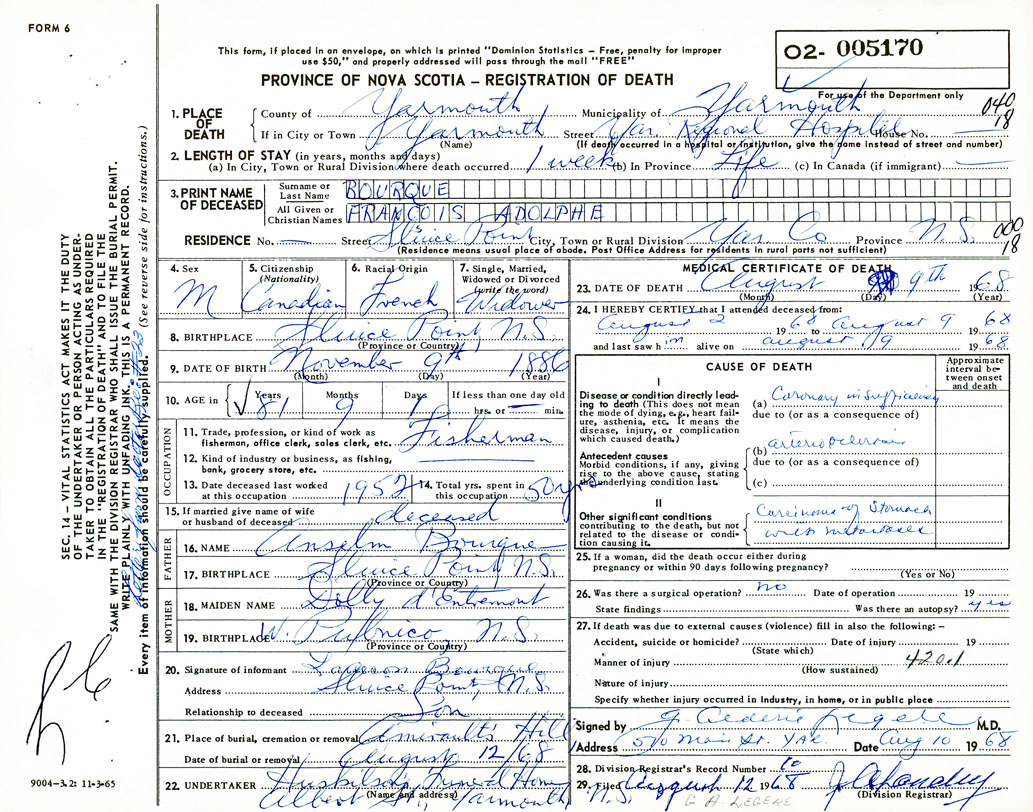 FORM 6
This form, if placed in an envelope, on which is printed "Dominion Statistics – Free, penalty for improper
use $50," and properly addressed will pass through the mail "FREE"
O2- 005170
PROVINCE OF NOVA SCOTIA – REGISTRATION OF DEATH
For use of the Department only
1. PLACE OF DEATH
County of Yarmouth Municipality of Yarmouth
040
18
If in City or Town Yarmouth Street Yar. Regional Hospital House No.
(Name) (If death occurred in a hospital or institution, give the name instead of street and number)
2. LENGTH OF STAY (in years, months and days)
(a) In City, Town or Rural Division where death occurred 1 week (b) In Province Life (c) In Canada (if immigrant) —
3. PRINT NAME OF DECEASED
Surname or Last Name BOURQUE
All Given or Christian Names FRANCOIS ADOLPHE
RESIDENCE No. — Street Sluice Point City, Town or Rural Division Yar Co Province N.S.
000
18
(Residence means usual place of abode. Post Office Address for residents in rural parts not sufficient)
4. Sex M
5. Citizenship (Nationality) Canadian
6. Racial Origin French
7. Single, Married, Widowed or Divorced (write the word) Widower
8. BIRTHPLACE Sluice Point, N.S.
(Province or Country)
9. DATE OF BIRTH November 9th 1886
(Month) (Day) (Year)
10. AGE in Years 81 Months 9 Days If less than one day old hrs. or min.
OCCUPATION
11. Trade, profession, or kind of work as
fisherman, office clerk, sales clerk, etc. Fisherman
12. Kind of industry or business, as fishing,
bank, grocery store, etc.
13. Date deceased last worked
at this occupation 1952
14. Total yrs. spent in
this occupation 50 yrs
15. If married give name of wife
or husband of deceased deceased
FATHER
16. NAME Anselm Bourque
17. BIRTHPLACE Sluice Point, N.S.
(Province or Country)
MOTHER
18. MAIDEN NAME Dolly d'Entremont
19. BIRTHPLACE W. Pubnico N.S.
(Province or Country)
20. Signature of informant Bourque
Address Sluice Point, N.S.
Relationship to deceased Son
21. Place of burial, cremation or removal Amiraults Hill
Date of burial or removal August 12/68
22. UNDERTAKER Huskilson Funeral Home
(Name and address)
Albert St., Yarmouth N.S.
MEDICAL CERTIFICATE OF DEATH
23. DATE OF DEATH August 9th 1968
(Month) (Day) (Year)
24. I HEREBY CERTIFY that I attended deceased from:
August 2 1968 to August 9 1968
and last saw him alive on August 9 1968
CAUSE OF DEATH
Approximate interval between onset and death
I
Disease or condition directly leading to death (This does not mean
the mode of dying, e.g., heart failure, asthenia, etc. It means the
disease, injury, or complication
which caused death.)
(a) Coronary insufficiency
due to (or as a consequence of)
Antecedent causes
Morbid conditions, if any, giving
rise to the above cause, stating
the underlying condition last.
(b) arteriosclerosis
due to (or as a consequence of)
(c)
II
Other significant conditions
contributing to the death, but not
related to the disease or condition causing it.
Carcinoma of Stomach
with metastases
25. If a woman, did the death occur either during
pregnancy or within 90 days following pregnancy?
(Yes or No)
26. Was there a surgical operation? no Date of operation 19
State findings Was there an autopsy? yes
27. If death was due to external causes (violence) fill in also the following: –
Accident, suicide or homicide? Date of injury 19
(State which)
Manner of injury 420.1
(How sustained)
Nature of injury
Specify whether injury occurred in Industry, in home, or in public place
Signed by M.D.
Address 510 Main St. YAR. Date Aug 10 1968
28. Division Registrar's Record Number
29. Filed August 12 1968
(Division Registrar)
G. A. LEGERE
SEC. 14 – VITAL STATISTICS ACT MAKES IT THE DUTY
OF THE UNDERTAKER OR PERSON ACTING AS UNDER-
TAKER TO OBTAIN ALL THE PARTICULARS REQUIRED
IN THE "REGISTRATION OF DEATH" AND TO FILE THE
SAME WITH THE DIVISION REGISTRAR WHO SHALL ISSUE THE BURIAL PERMIT.
WRITE PLAINLY WITH UNFADING INK. THIS IS A PERMANENT RECORD.
Every item of information should be carefully supplied. (See reverse side for instructions.)
9004–3.2: 11-3-65